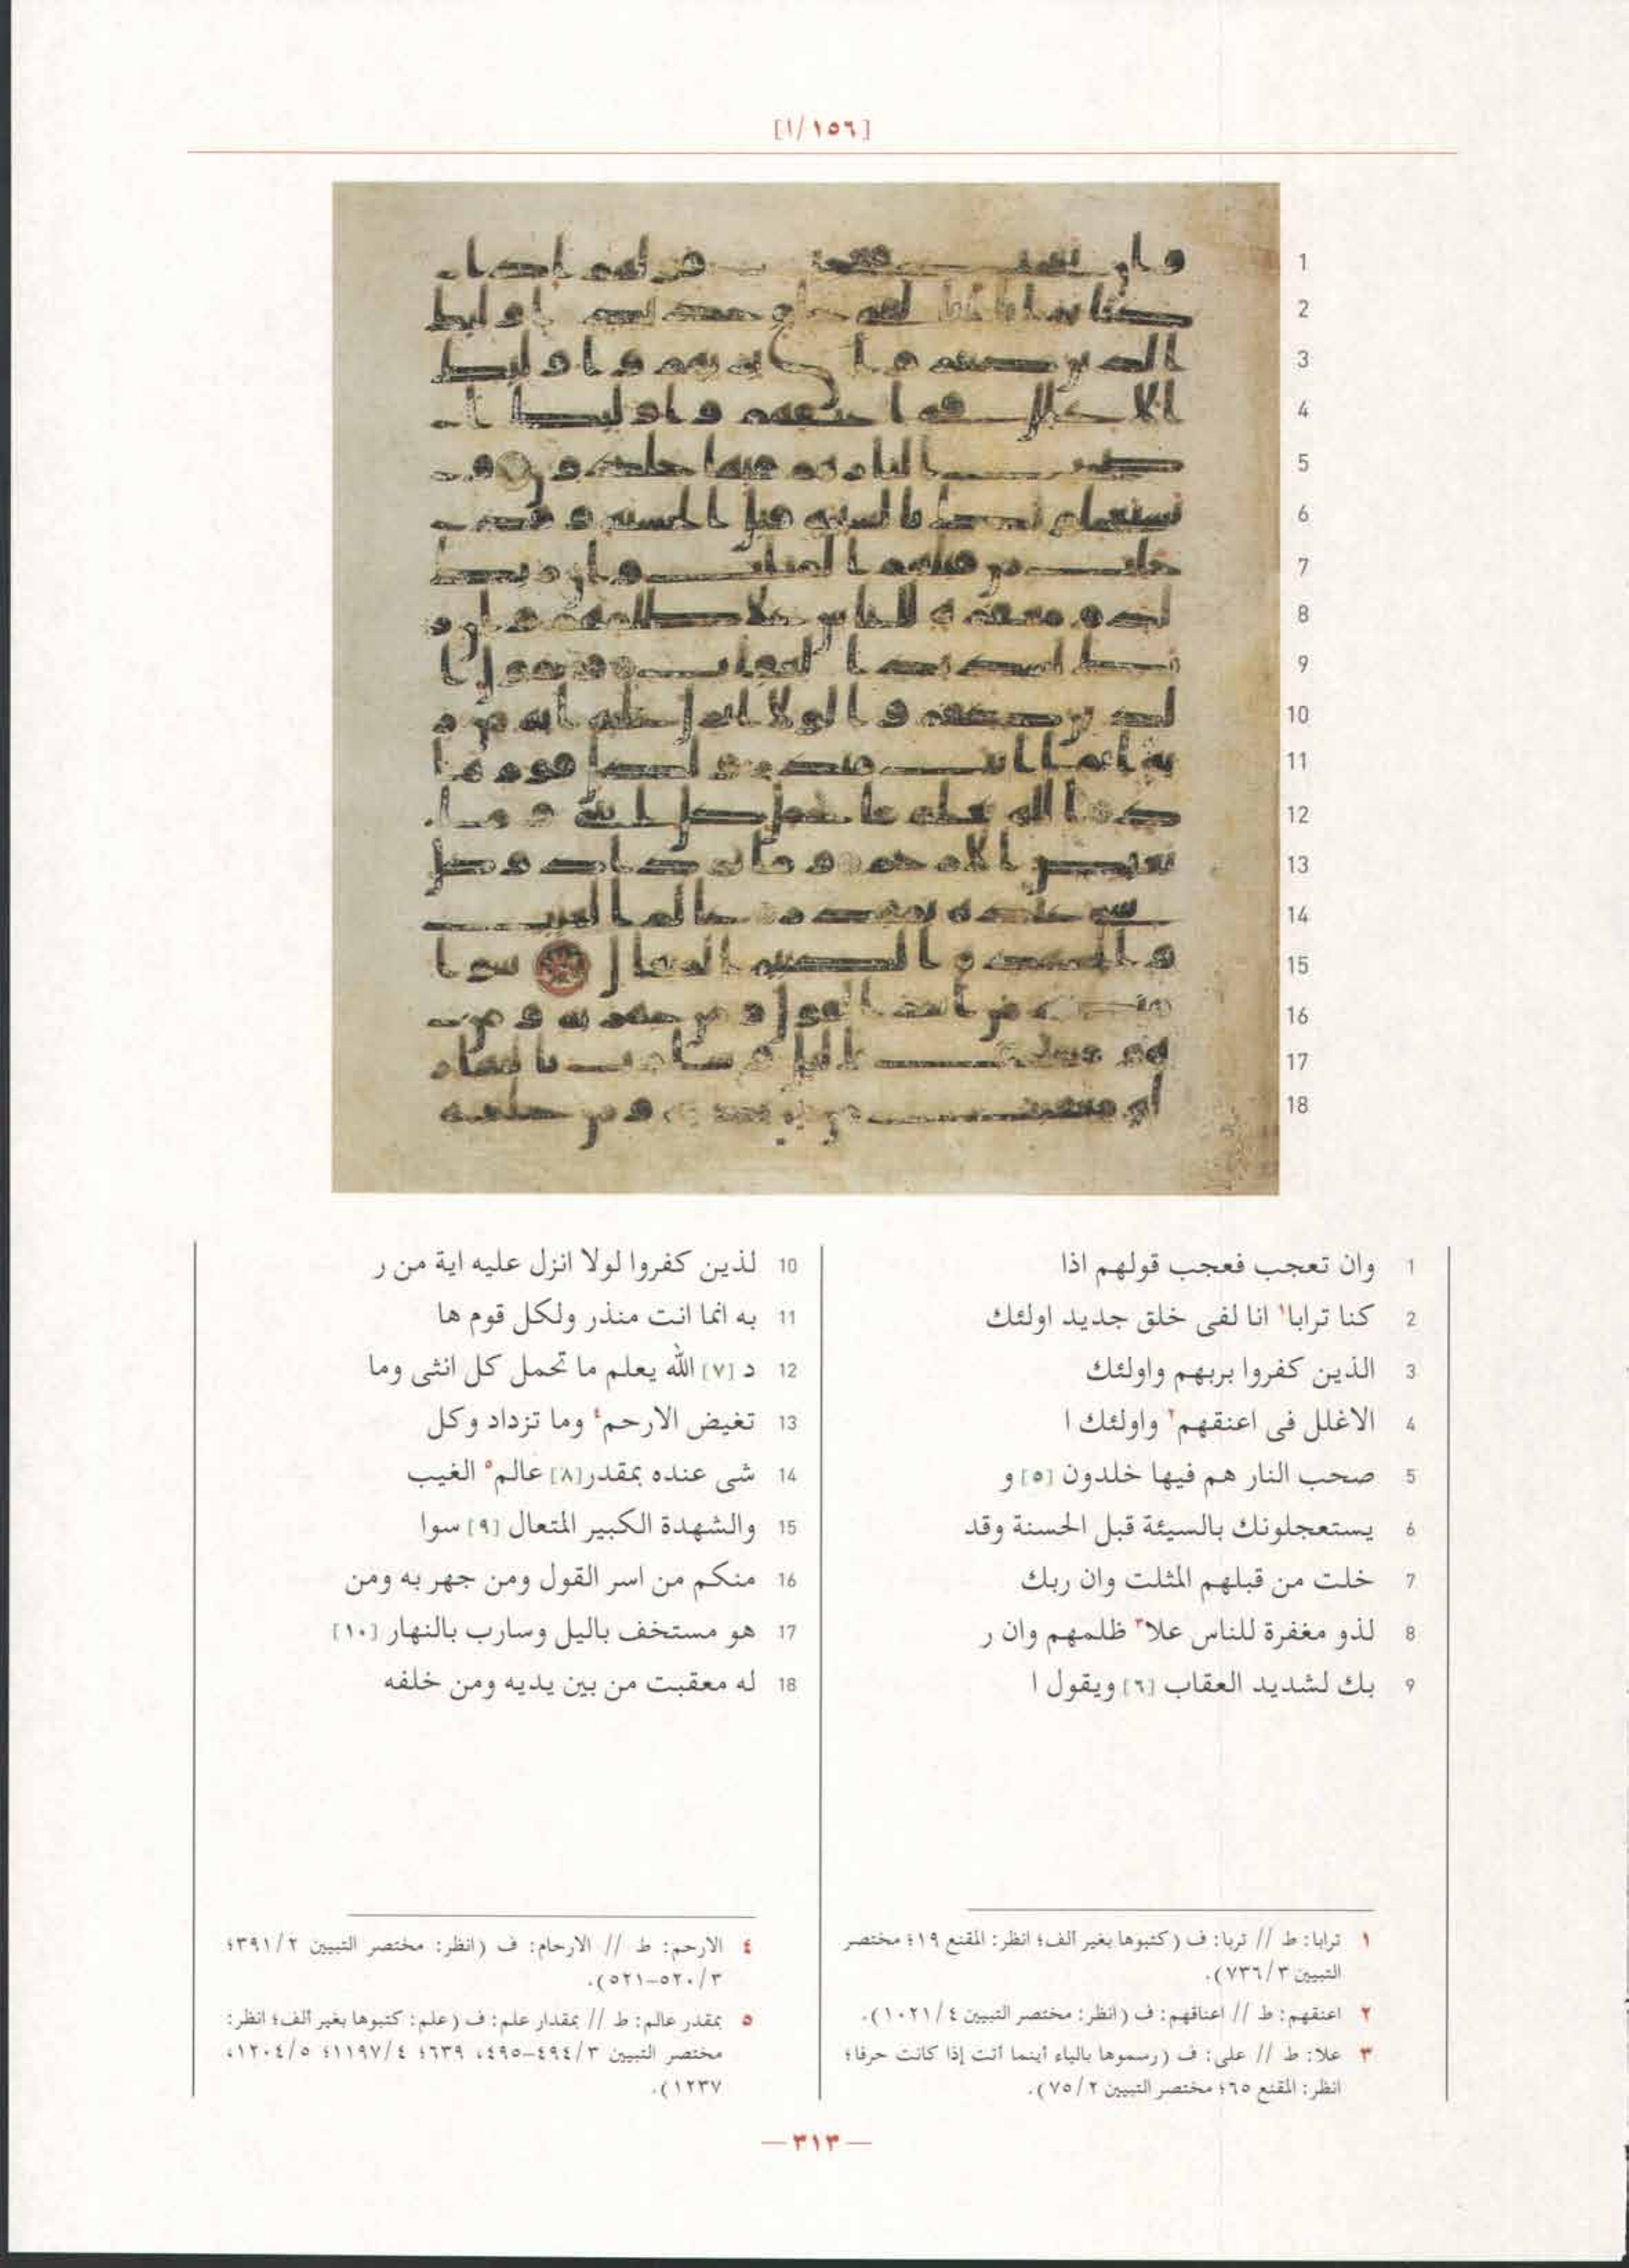 [١/١٥٦]
1
2
3
4
5
6
7
8
9
10
11
12
13
14
15
16
17
18
1 وان تعجب فعجب قولهم اذا
2 كنا ترابا١ انا لفى خلق جديد اولئك
3 الذين كفروا بربهم واولئك
4 الاغلل فى اعنقهم٢ واولئك ا
5 صحب النار هم فيها خلدون [٥] و
6 يستعجلونك بالسيئة قبل الحسنة وقد
7 خلت من قبلهم المثلت وان ربك
8 لذو مغفرة للناس علا٣ ظلمهم وان ر
9 بك لشديد العقاب [٦] ويقول ا
10 لذين كفروا لولا انزل عليه اية من ر
11 به انما انت منذر ولكل قوم ها
12 د [٧] الله يعلم ما تحمل كل انثى وما
13 تغيض الارحم٤ وما تزداد وكل
14 شى عنده بمقدر[٨] عالم٥ الغيب
15 والشهدة الكبير المتعال [٩] سوا
16 منكم من اسر القول ومن جهر به ومن
17 هو مستخف باليل وسارب بالنهار [١٠]
18 له معقبت من بين يديه ومن خلفه
١ ترابا: ط // تربا: ف (كتبوها بغير ألف؛ انظر: المقنع ١٩؛ مختصر
التبيين ٧٣٦/٣).
٢ اعنقهم: ط // اعناقهم: ف (انظر: مختصر التبيين ١٠٢١/٤).
٣ علا: ط // على: ف (رسموها بالياء أينما أتت إذا كانت حرفا؛
انظر: المقنع ٦٥؛ مختصر التبيين ٧٥/٢).
٤ الارحم: ط // الارحام: ف (انظر: مختصر التبيين ٣٩١/٢؛
٥٢٠/٣-٥٢١).
٥ بمقدر عالم: ط // بمقدار علم: ف (علم: كتبوها بغير ألف؛ انظر:
مختصر التبيين ٤٩٤/٣-٤٩٥، ٦٣٩؛ ١١٩٧/٤؛ ١٢٠٤/٥،
١٢٣٧).
— ٣١٣ —